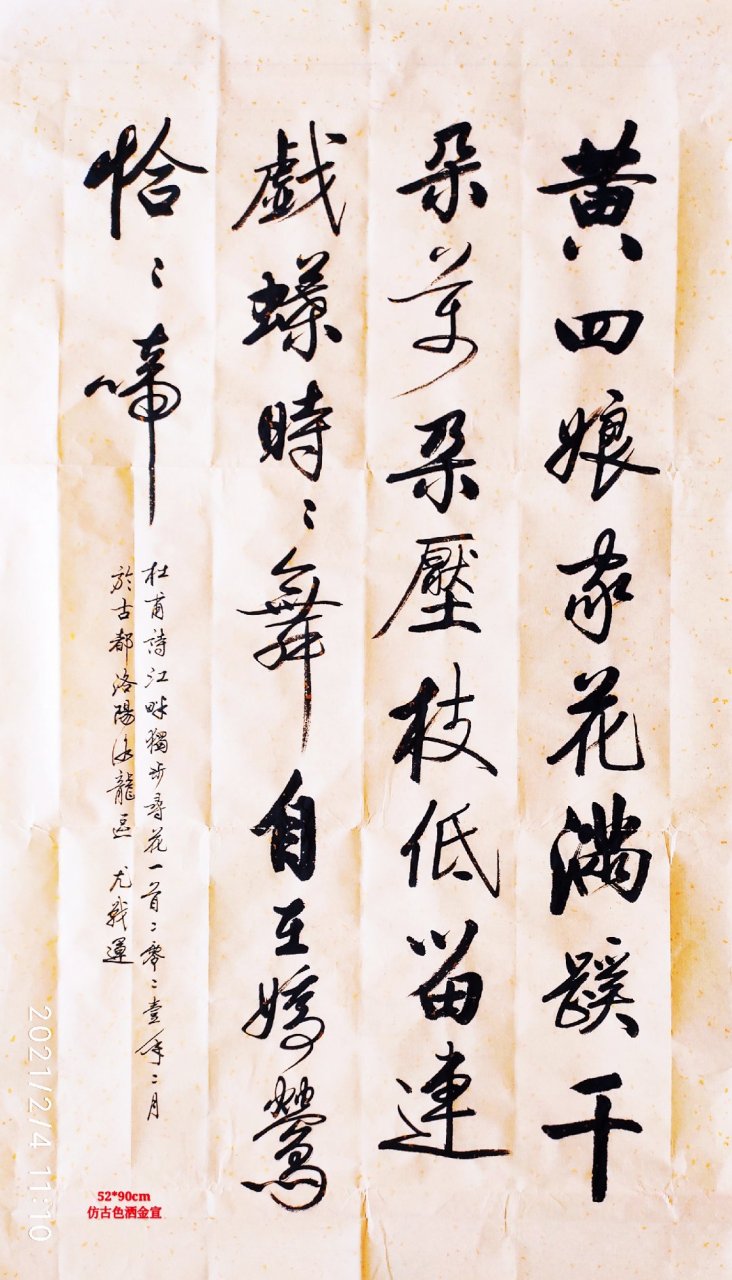 黄四娘家花满蹊千
朵万朵壓枝低留連
戲蝶時〻舞自在嬌鶯
恰〻啼
杜甫詩江畔獨步尋花一首二零二壹年二月
於古都洛陽洛龍區 尤戰運
2021/2/4 11:10
52*90cm
仿古色洒金宣